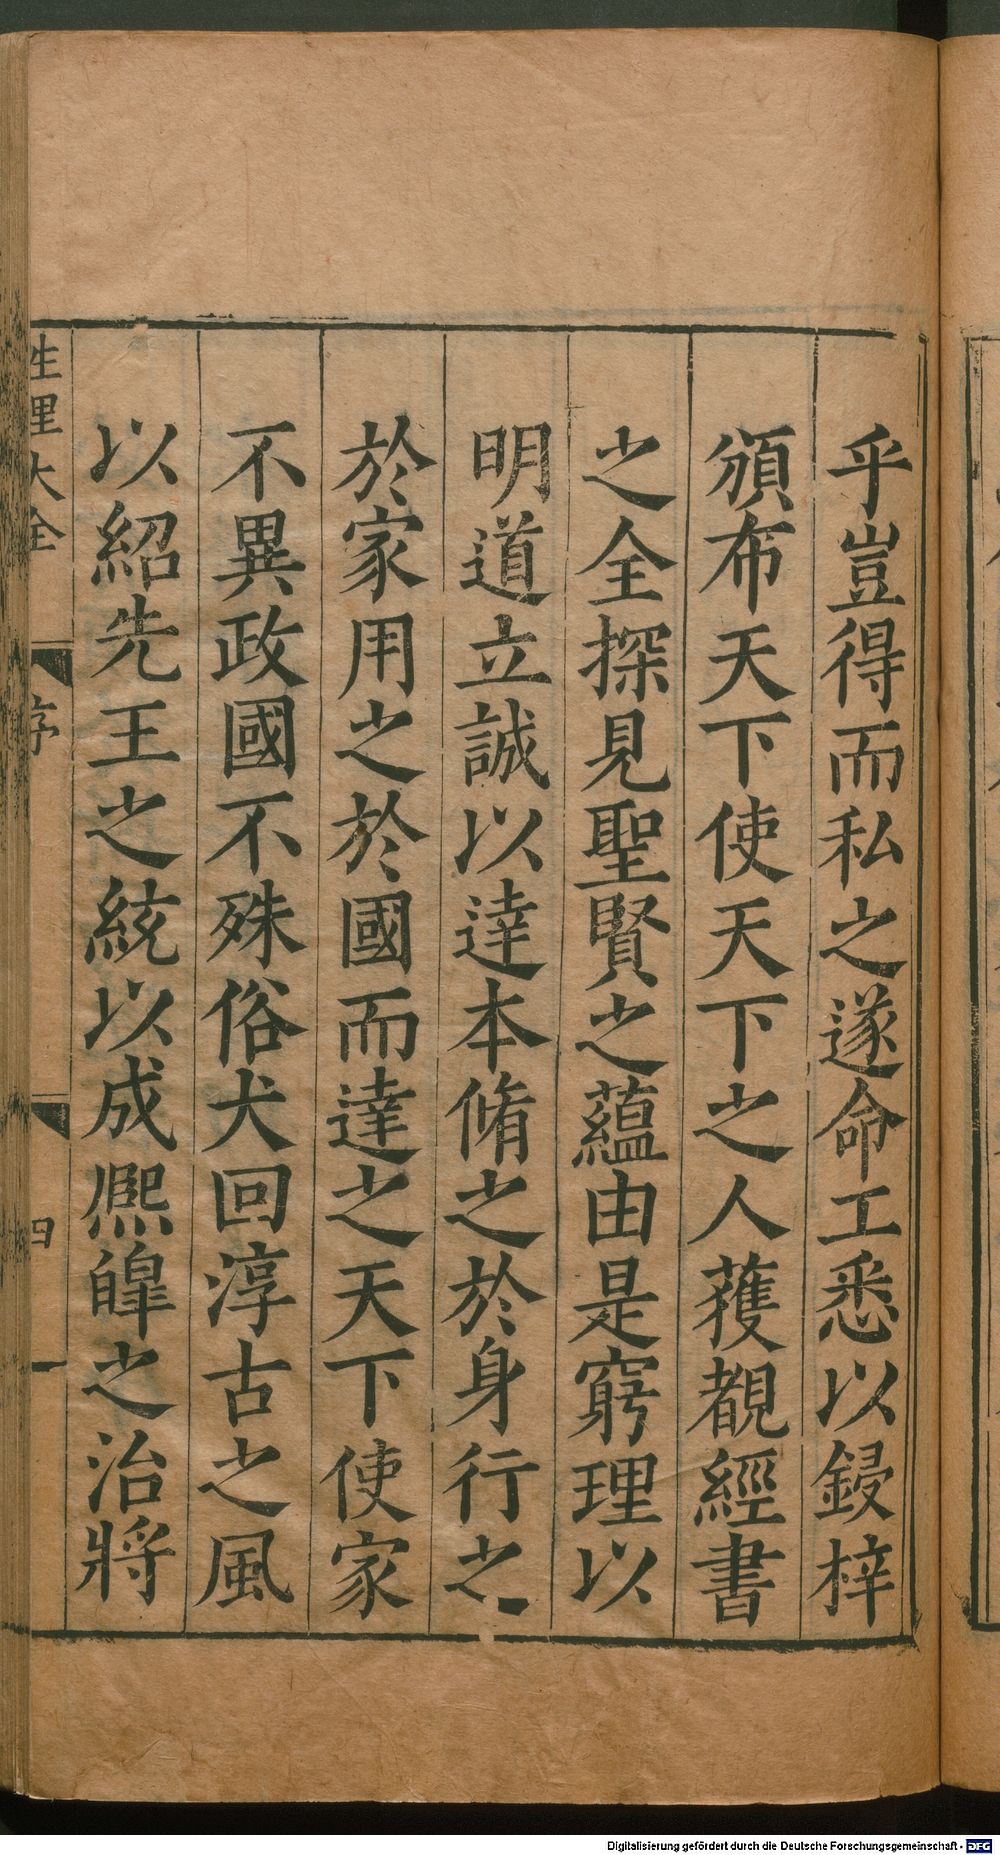 乎豈得而私之遂命工悉以鋟梓
頒布天下使天下之人獲覩經書
之全探見聖賢之蘊由是窮理以
明道立誠以達本脩之於身行之
於家用之於國而達之天下使家
不異政國不殊俗大回淳古之風
以紹先王之統以成熈皥之治將
性理大全
序
四
Digitalisierung gefördert durch die Deutsche Forschungsgemeinschaft - DFG